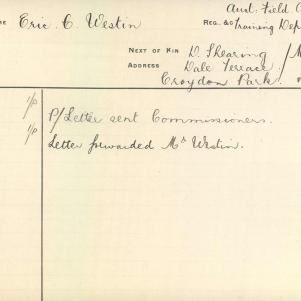 Aust. Field
ME Eric. C. Westin REG. &C Training Dep
NEXT OF KIN D. Shearing
ADDRESS Dale Terrace
Croydon Park.
1/p P/Letter sent Commissioners.
1/p Letter forwarded Mrs Westin.